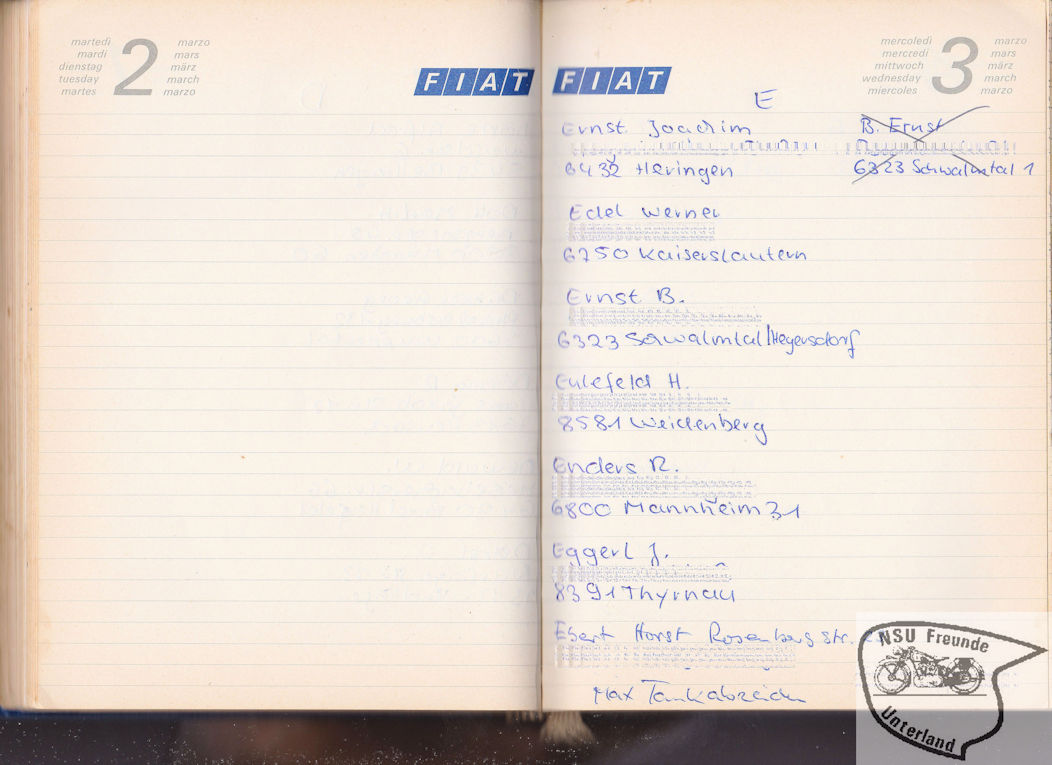 martedì
mardi
dienstag
tuesday
martes
2
marzo
mars
märz
march
marzo
FIAT
FIAT
mercoledì
mercredi
mittwoch
wednesday
miercoles
3
marzo
mars
märz
march
marzo
E
Ernst Joachim
6432 Heringen
B. Ernst
6323 Schwalmtal 1
Edel Werner
6750 Kaiserslautern
Ernst B.
6323 Schwalmtal/Heyersdorf
Eulefeld H.
8581 Weidenberg
Enders R.
6800 Mannheim 31
Eggerl J.
8391 Thyrnau
Ebert Horst Rosenberg Str.
Max Tankabzeichen
NSU Freunde
Unterland